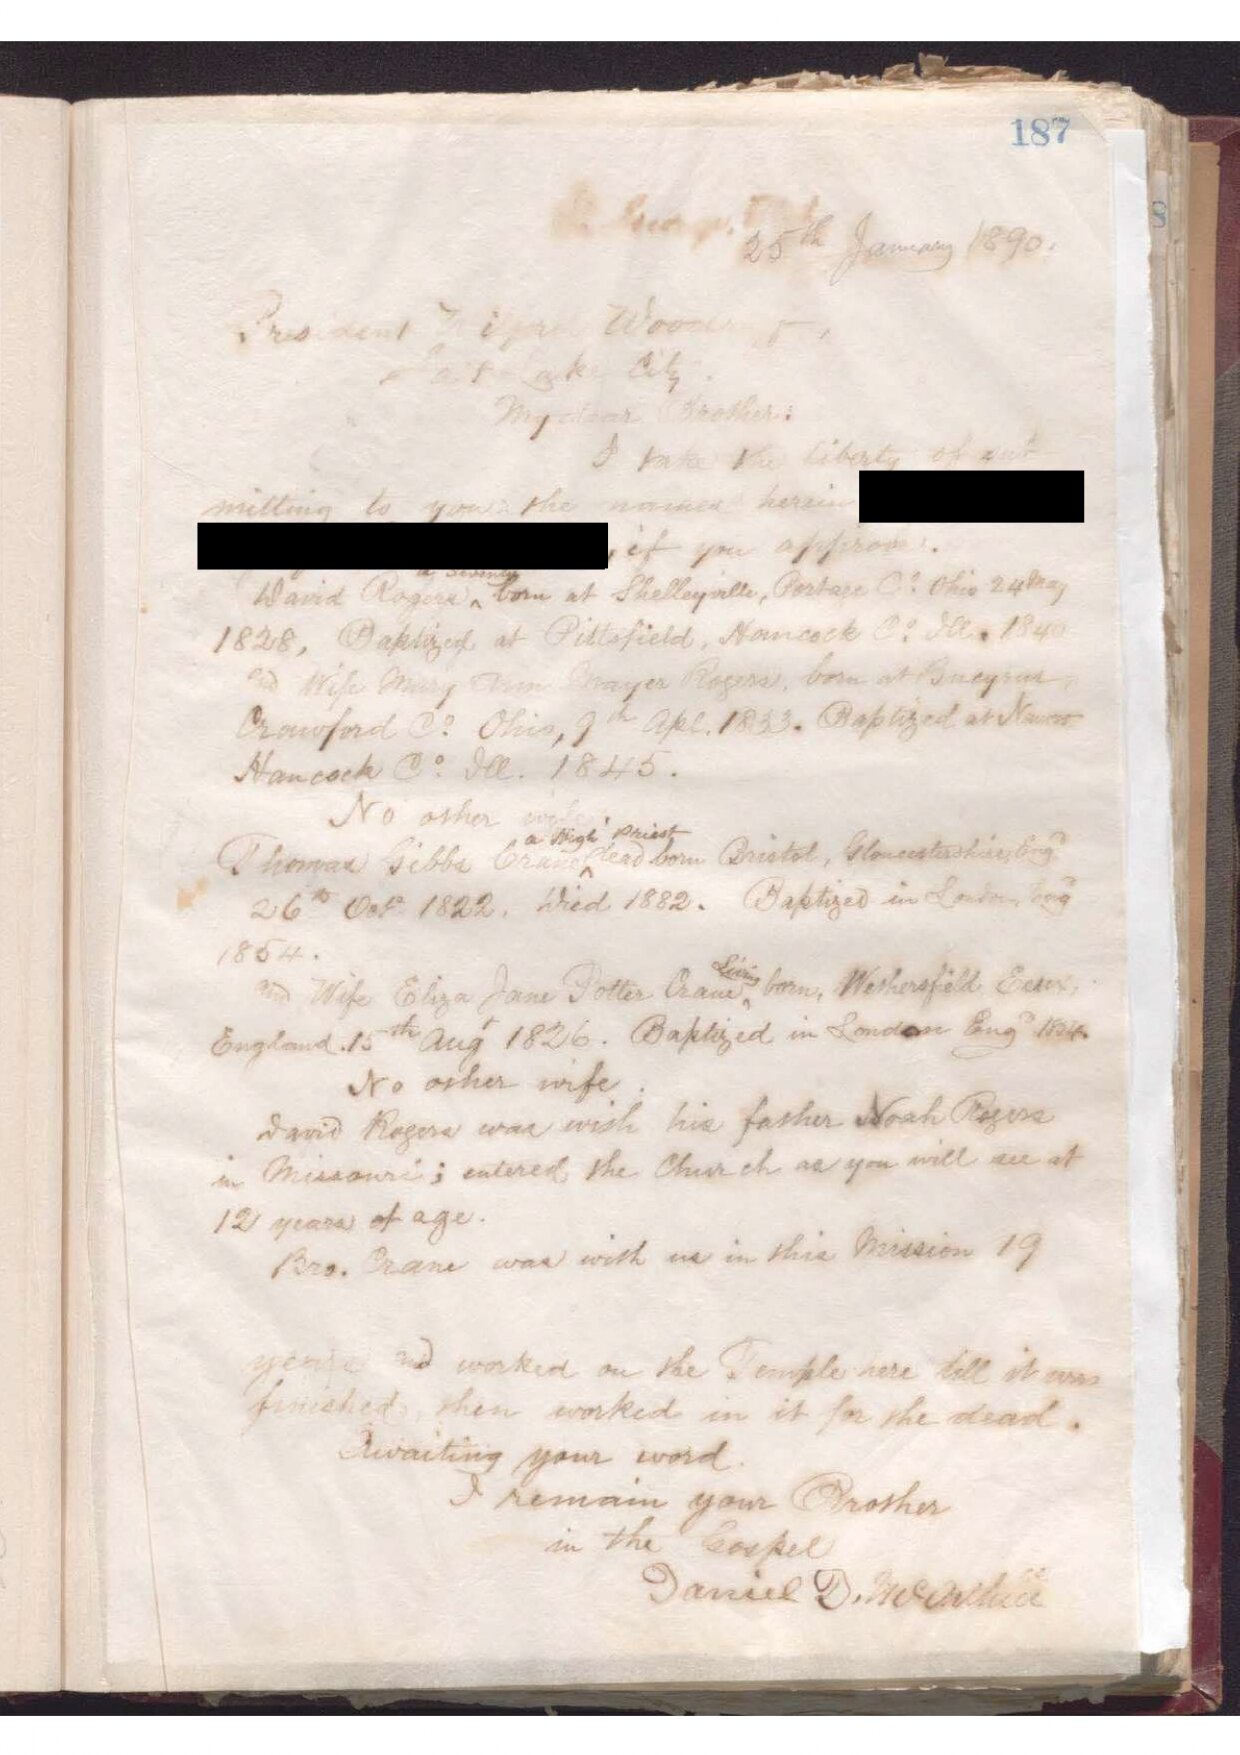 187
25th January 1890.
President Woodruff,
Lake City.
My dear Brother:
I take the liberty of sub-
mitting to you the names herein
, if you approve.
a Seventy
David Rogers ^ born at Shelleyville, Portage Co. Ohio 24 May
1828, Baptized at Pittsfield, Hancock Co. Ill. 1840
and Wife Mary Ann Mayer Rogers, born at Bucyrus,
Crowford Co. Ohio, 9th Apl. 1833. Baptized at Nauvoo
Hancock Co. Ill. 1845.
No other wife.
a High Priest
Thomas Gibbs Crane ^ dead born Bristol, Gloucestershire, Engd
26th Oct. 1822. Died 1882. Baptized in London, Engd
1854.
Living
and Wife Eliza Jane Potter Crane ^ born, Wethersfield Essex,
England. 15th Augt 1826. Baptized in London Engd 1854.
No other wife.
David Rogers was with his father Noah Rogers
in Missouri; entered the Church as you will see at
12 years of age.
Bro. Crane was with us in this Mission 19
years and worked on the Temple here till it was
finished, then worked in it for the dead.
Awaiting your word.
I remain your Brother
in the Gospel
Daniel D. McArthur